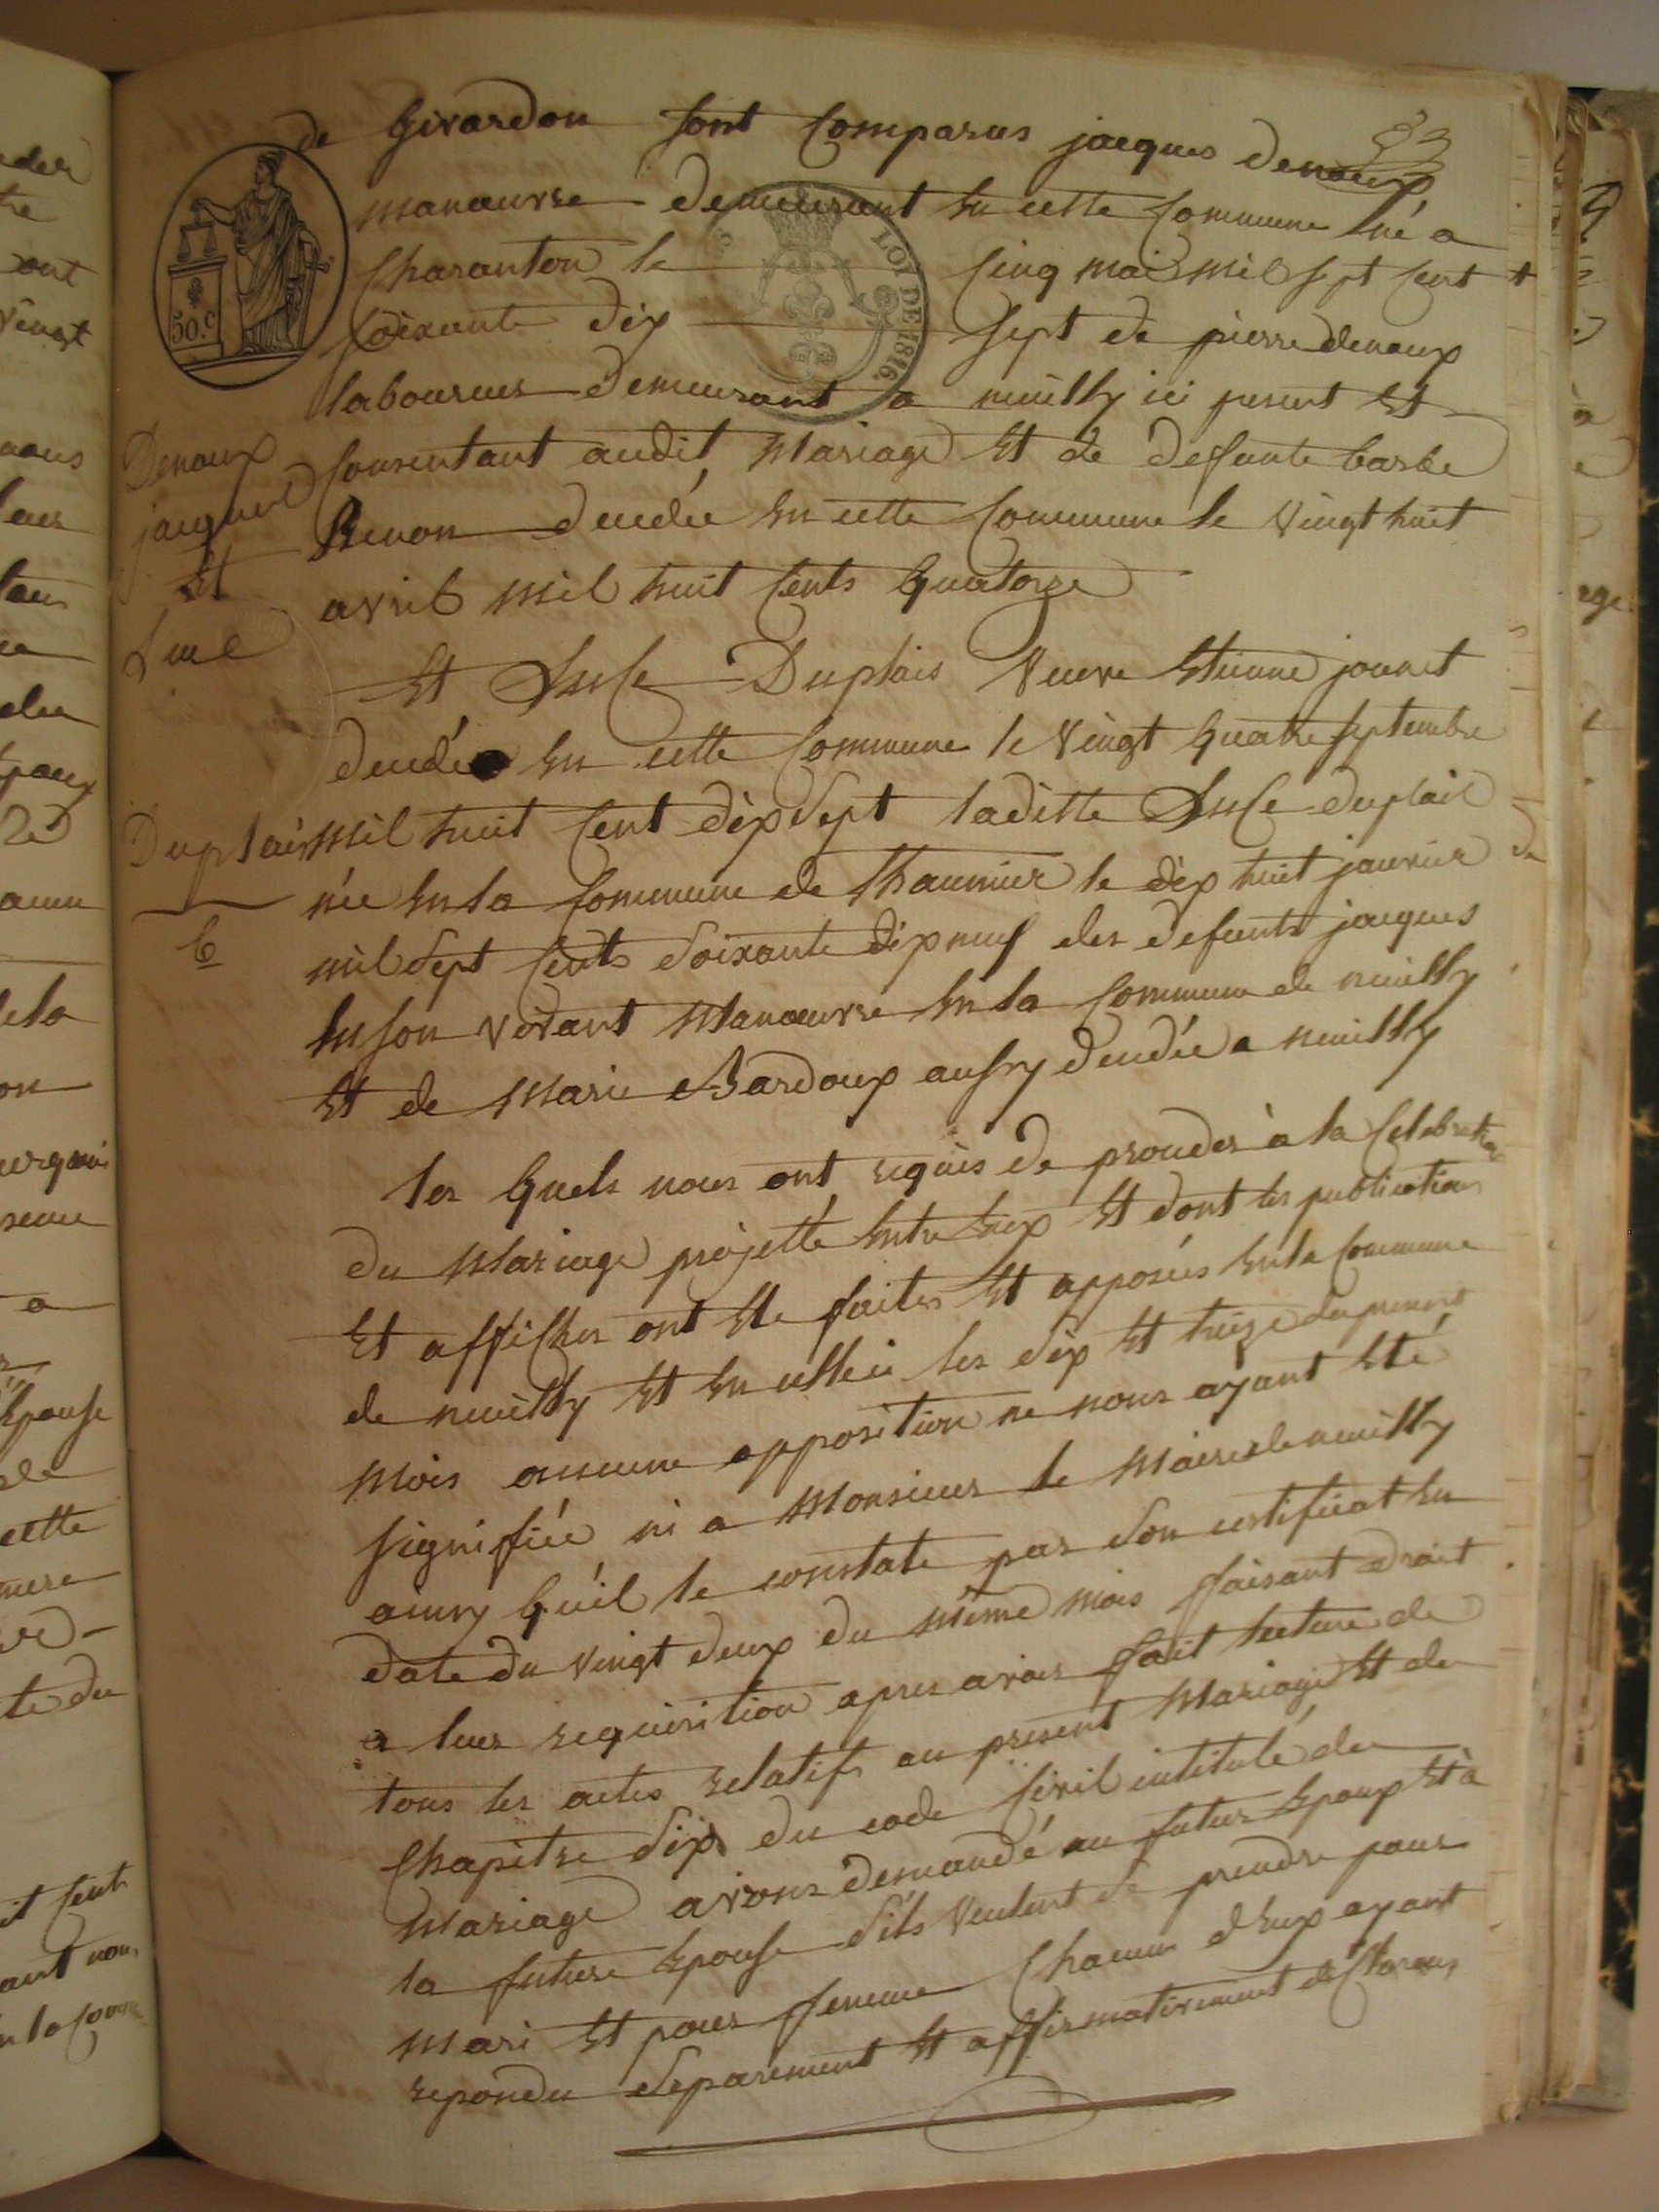 de Girardon sont Comparus jacques denoux
manoeuvre demeurant En cette Commune né a
Charanton le Cinq mai mil sept Cent
soixante dix sept de pierre denoux
laboureur demeurant a neuilly ici present Et
Consentant audit Mariage Et de defunte barbe
Renon decedée En cette Commune le Vingt huit
avril Mil huit Cents Quatorze
Et Luce Duplais Veuve Etienne jounet
decedé En cette Commune le Vingt Quatre septembre
Mil huit Cent dix sept laditte Luce duplais
née En la Commune de Thaumier le dix huit janvier
mil sept Cents soixante dix neuf des defunts jacques
En son Vivant Manoeuvre En la Commune de neuilly
Et de Marie Bardoux aussy decedée a neuilly
les Quels nous ont requis de proceder à la Celebration
du Mariage projetté Entre Eux Et dont les publications
Et affiches ont Ete faites Et apposées En la Commune
de neuilly Et En celle ci les dix Et treize du present
Mois aucune opposition ne nous ayant Eté
signifiée ni a Monsieur le Maire de neuilly
ainsy Qu'il le constate par son certificat En
date du Vingt deux du même Mois faisant droit
a leur requisition apres avoir fait lecture de
tous les actes relatifs au present Mariage Et du
Chapitre six du code Civil intitulé du
Mariage avons demandé au futur Epoux Et à
la future Epouse s'ils Veulent se prendre pour
Mari Et pour femme Chacun d'Eux ayant
repondu separement Et affirmativement declarons
Denoux
jacques
Et
Luce
Duplais
6
50.c
LOI DE 1816.